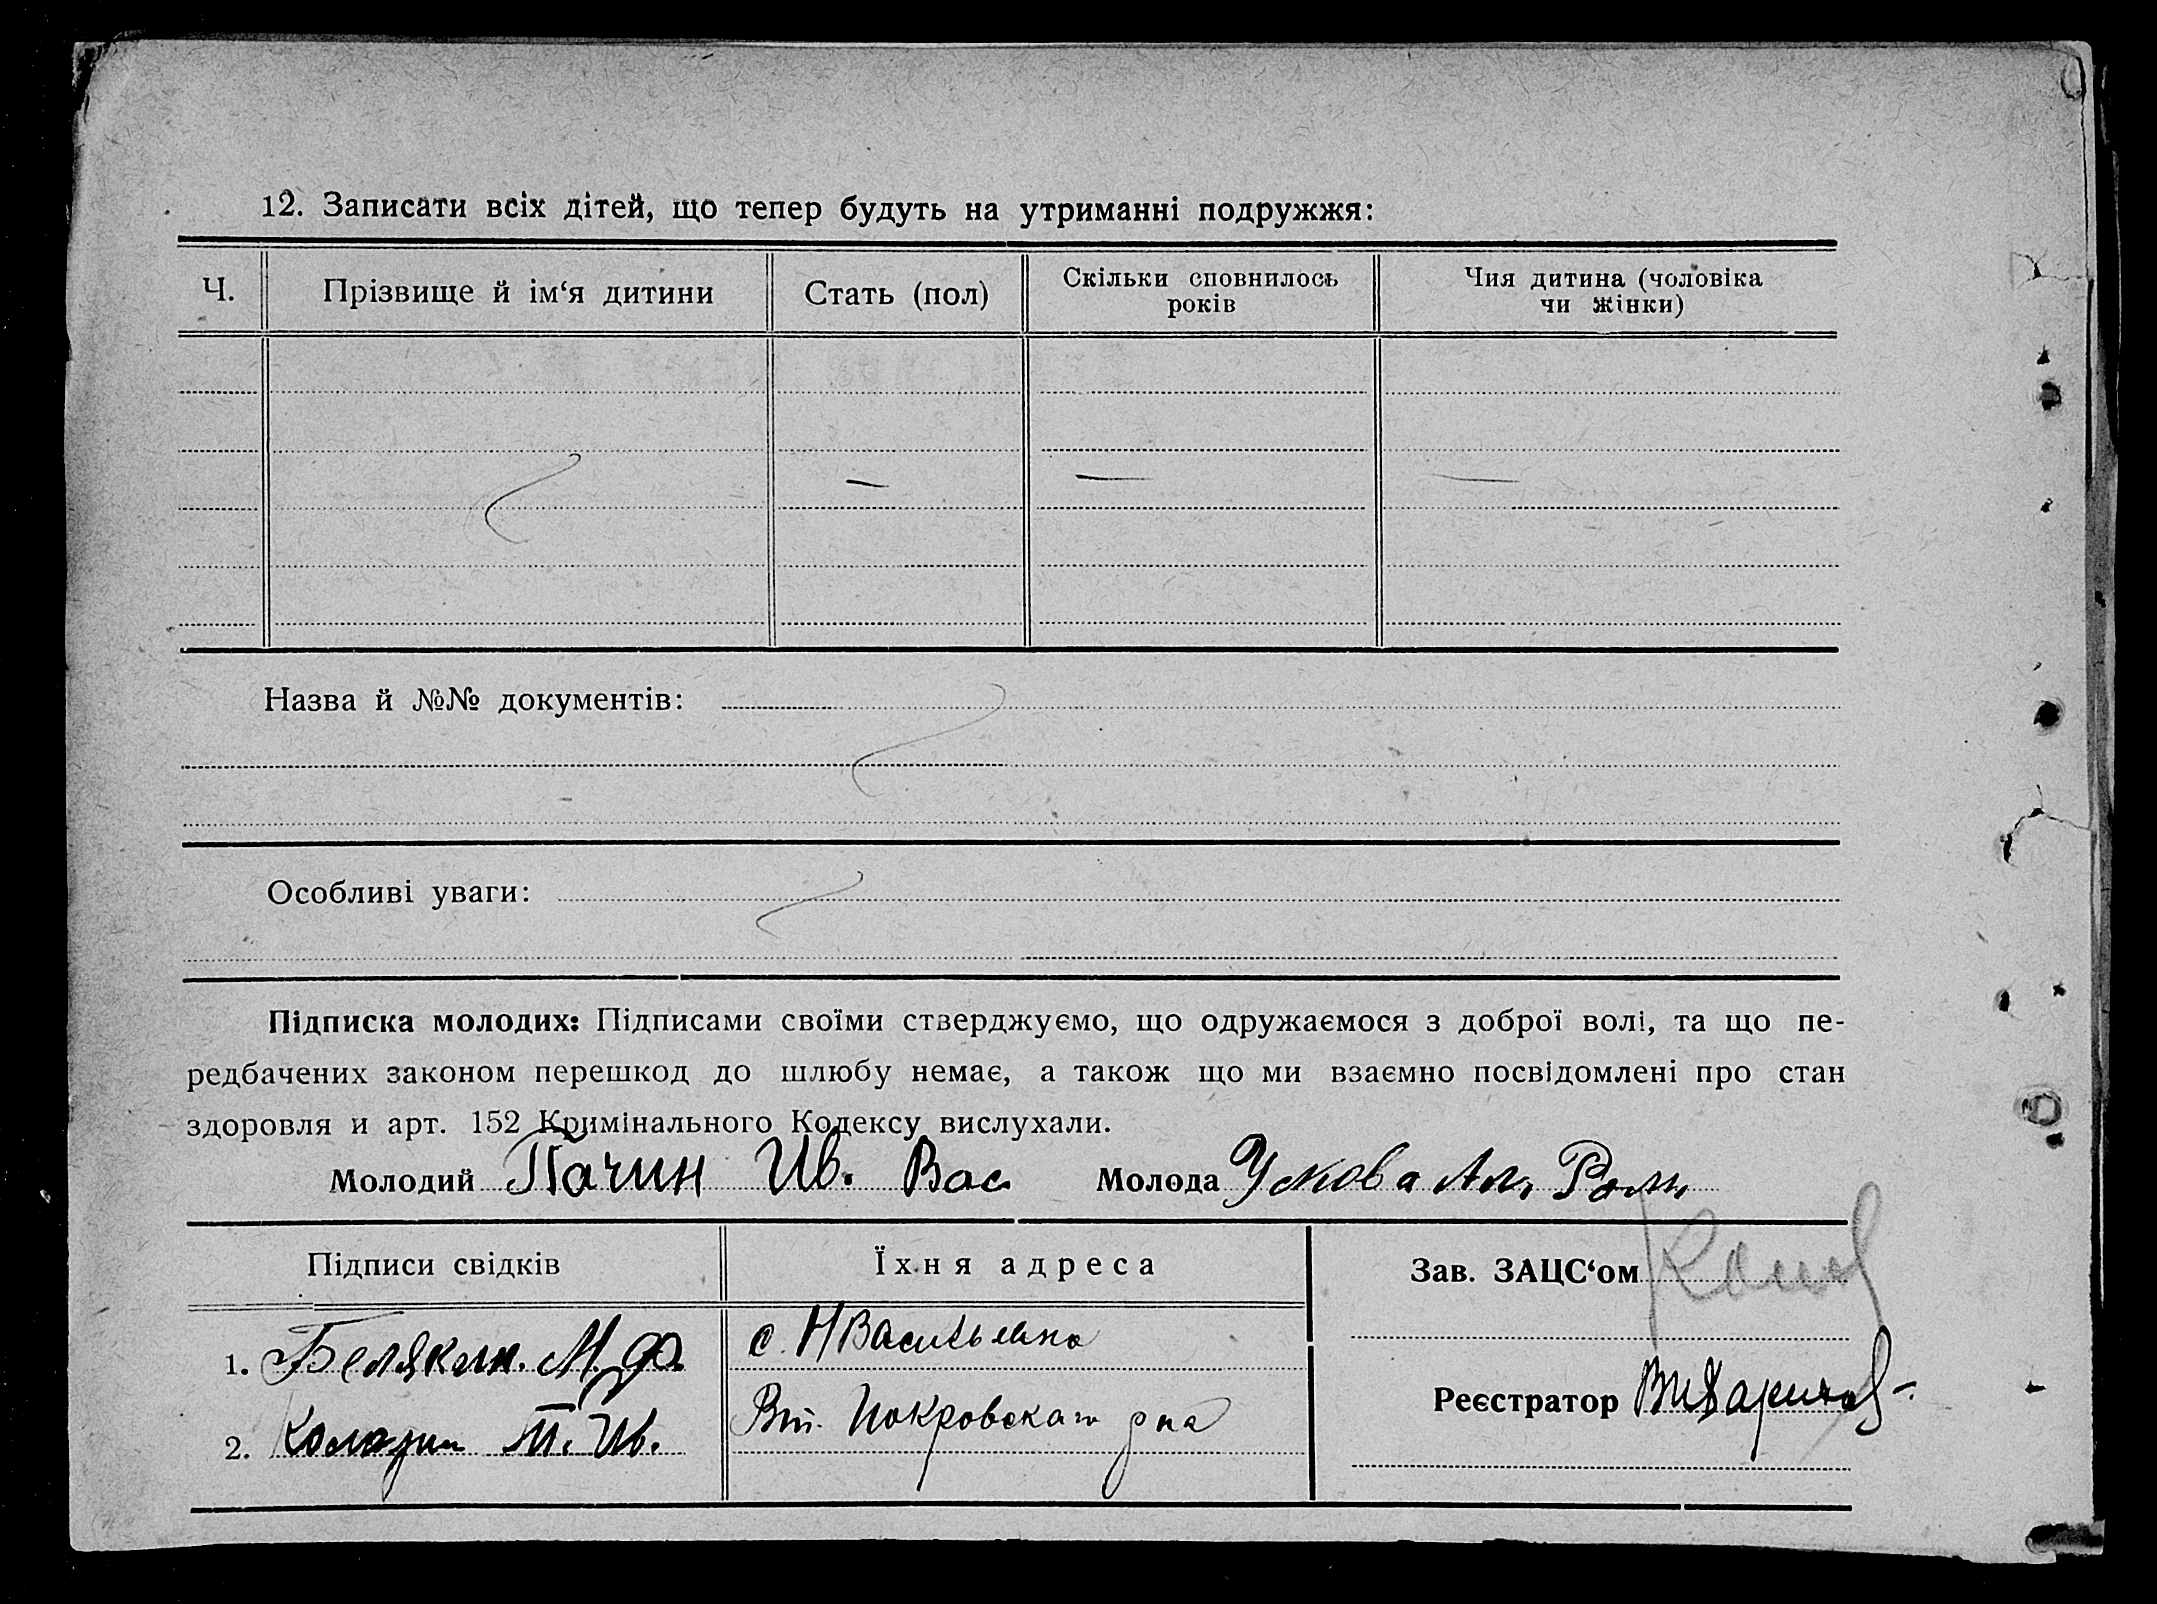 12. Записати всіх дітей, що тепер будуть на утриманні подружжя:
Ч. Прізвище й ім‘я дитини Стать (пол) Скільки сповнилось років Чия дитина (чоловіка чи жінки)
— — —
Назва й №№ документів:
Особливі уваги:
Підписка молодих: Підписами своїми стверджуємо, що одружаємося з доброї волі, та що пе-
редбачених законом перешкод до шлюбу немає, а також що ми взаємно посвідомлені про стан
здоровля и арт. 152 Кримінального Кодексу вислухали.
Молодий Пачин Ив. Вас Молода Ускова Ал. Ром.
Підписи свідків Їхня адреса Зав. ЗАЦС‘ом
1. Белякин. М. Ф. с. НВасильевка
Реєстратор
2. Т. Ив. Вт. Покровскаго рна